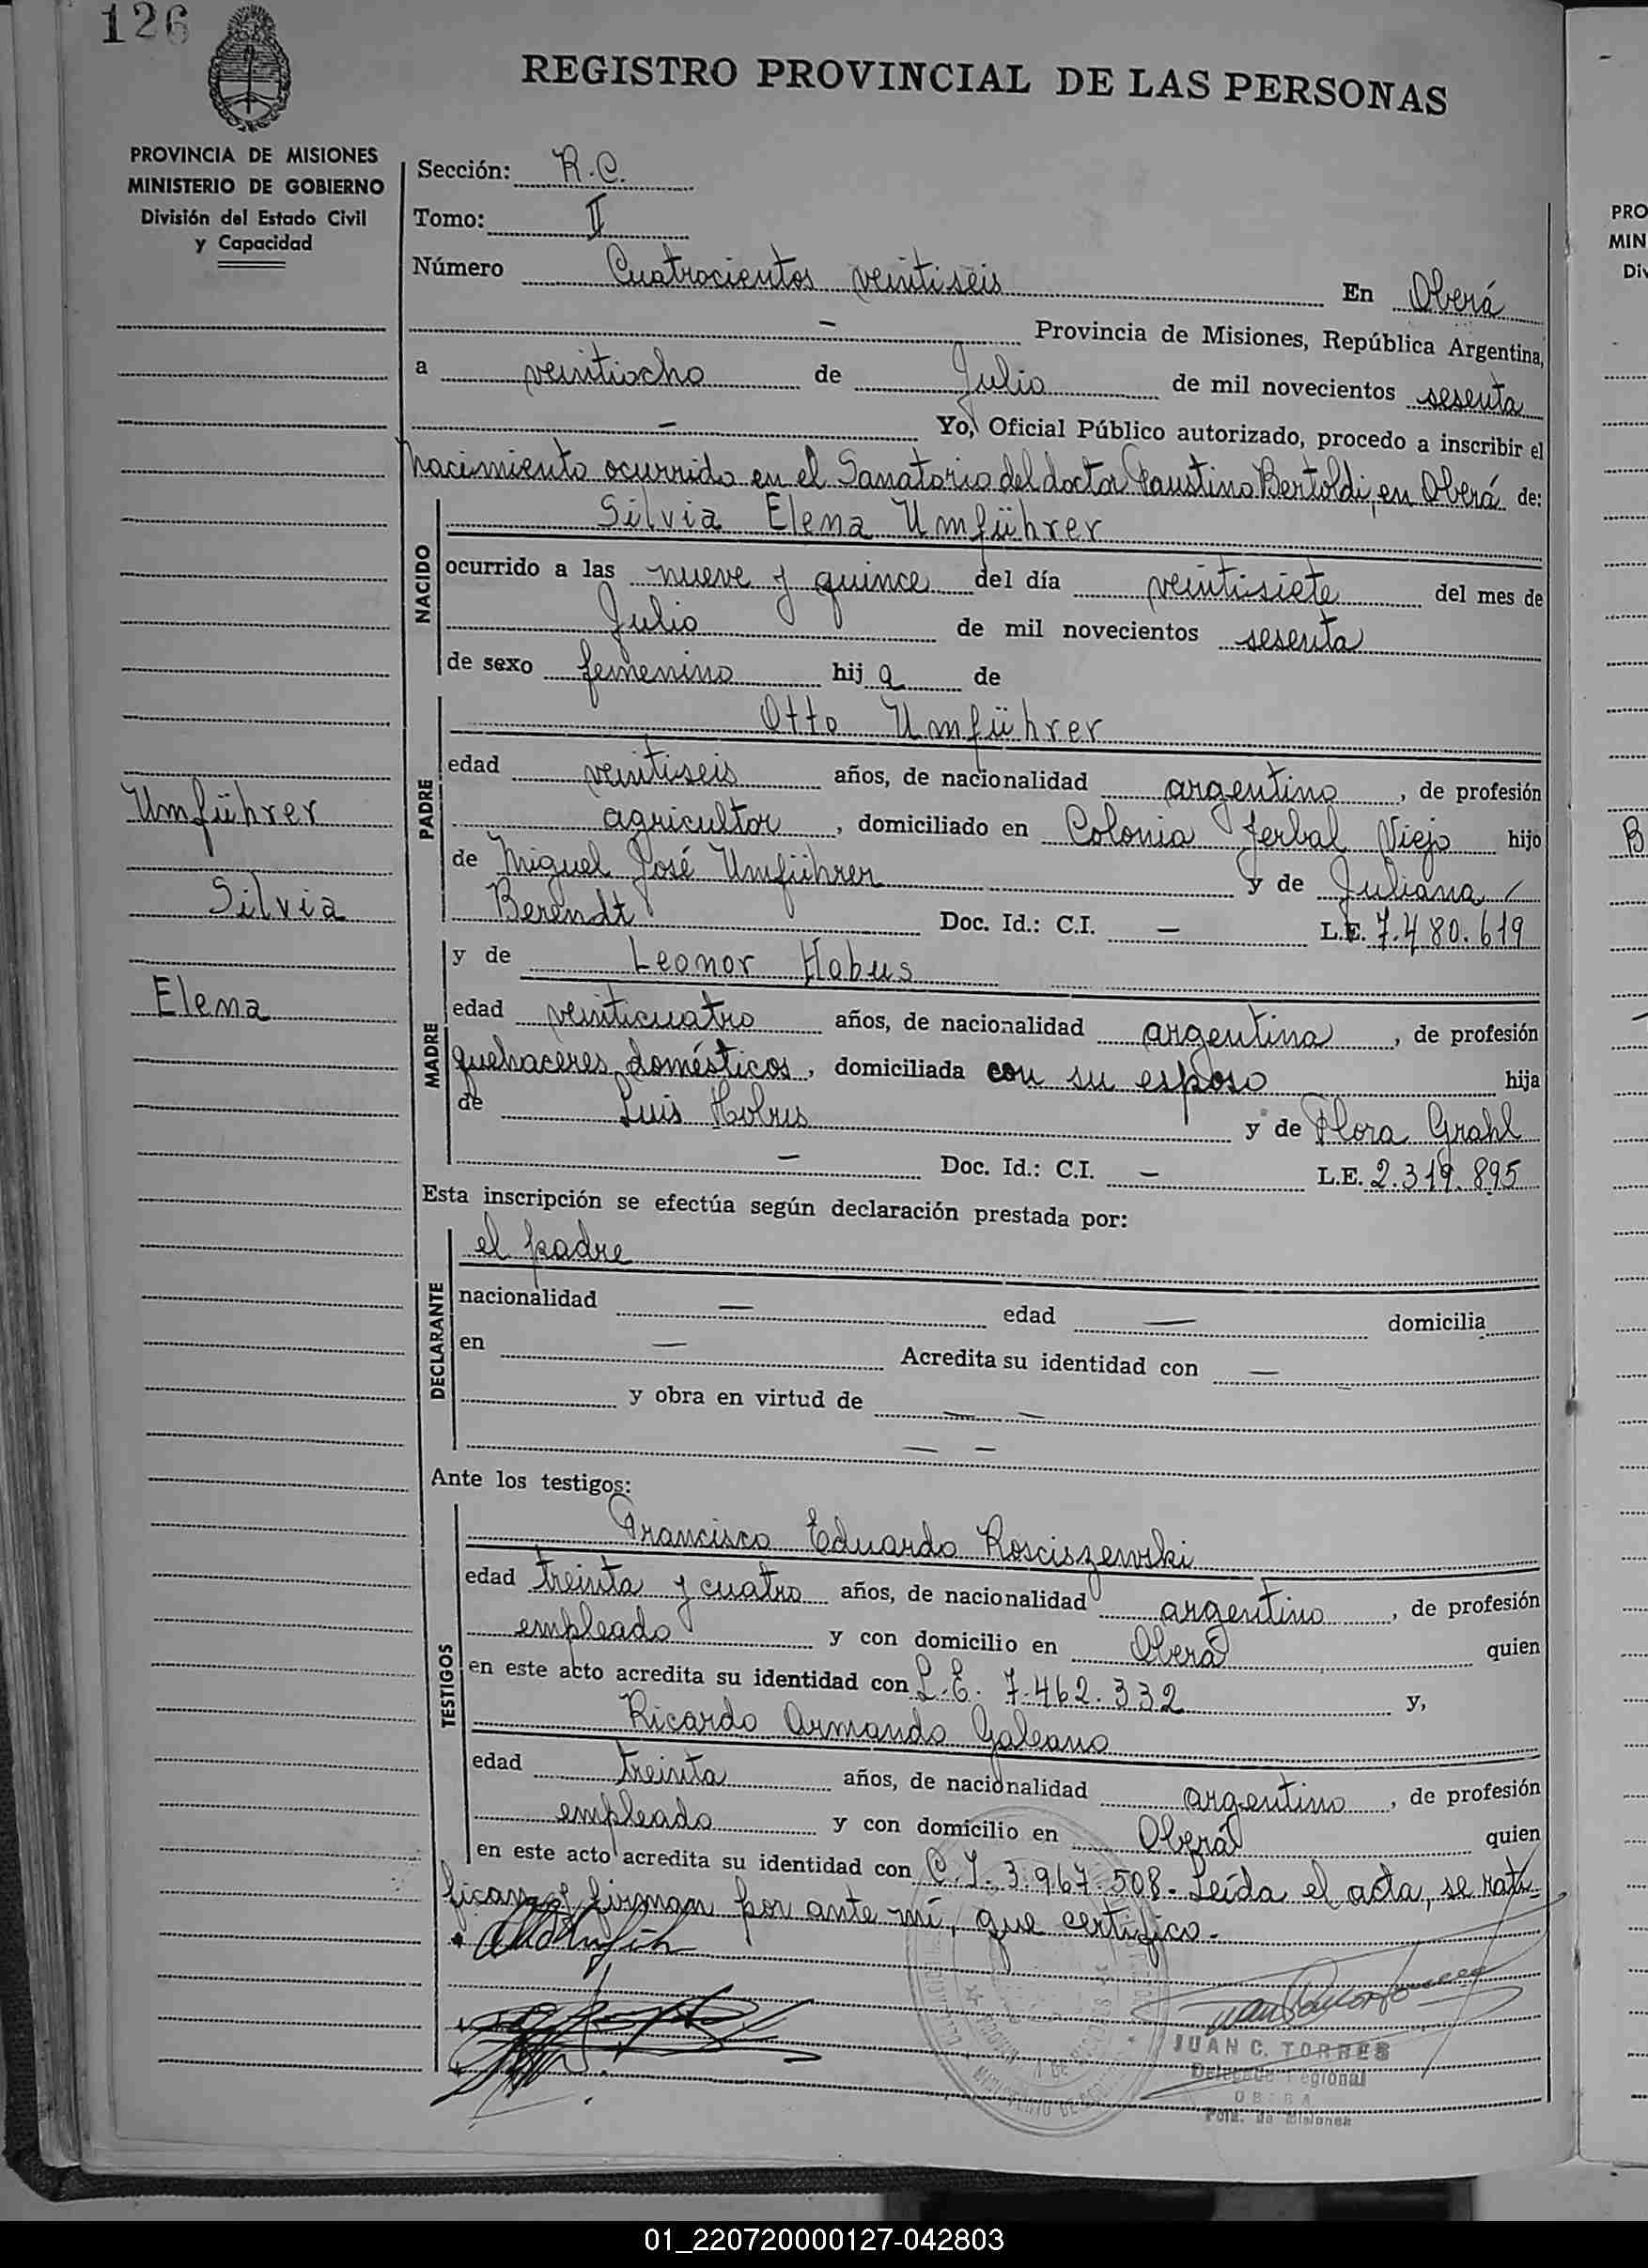 126
REGISTRO PROVINCIAL DE LAS PERSONAS
PROVINCIA DE MISIONES
MINISTERIO DE GOBIERNO
División del Estado Civil
y Capacidad
Umführer
Silvia
Elena
Sección: R.C.
Tomo: II
Número Cuatrocientos veintiseis En Oberá
— Provincia de Misiones, República Argentina,
a veintiocho de Julio de mil novecientos sesenta
— Yo, Oficial Público autorizado, procedo a inscribir el
nacimiento ocurrido en el Sanatorio del doctor Faustino Bertoldi, en Oberá de:
NACIDO
Silvia Elena Umführer
ocurrido a las nueve y quince del día veintisiete del mes de
Julio de mil novecientos sesenta
de sexo femenino hij a de
PADRE
Otto Umführer
edad veintiseis años, de nacionalidad argentino, de profesión
agricultor, domiciliado en Colonia Yerbal Viejo hijo
de Miguel José Umführer y de Juliana
Berendt Doc. Id.: C.I. — L.E. 7.480.619
MADRE
y de Leonor Hobus
edad veinticuatro años, de nacionalidad argentina, de profesión
quehaceres domésticos, domiciliada con su esposo hija
de Luis Hobus y de Flora Grahl
— Doc. Id.: C.I. — L.E. 2.319.895
Esta inscripción se efectúa según declaración prestada por:
DECLARANTE
el padre
nacionalidad — edad — domicilia
en — Acredita su identidad con —
y obra en virtud de — —
— —
Ante los testigos:
TESTIGOS
Francisco Eduardo Rosciszewski
edad treinta y cuatro años, de nacionalidad argentino, de profesión
empleado y con domicilio en Oberá quien
en este acto acredita su identidad con L.E. 7.462.332 y,
Ricardo Armando Galeano
edad treinta años, de nacionalidad argentino, de profesión
empleado y con domicilio en Oberá quien
en este acto acredita su identidad con C.I. 3.967.508.- Leída el acta, se rati-
fican y firman por ante mí, que certifico.-
JUAN C. TORRES
Delegado Regional
OBERA
Pcia. de Misiones
PRO
MIN
Div
B
01_220720000127-042803